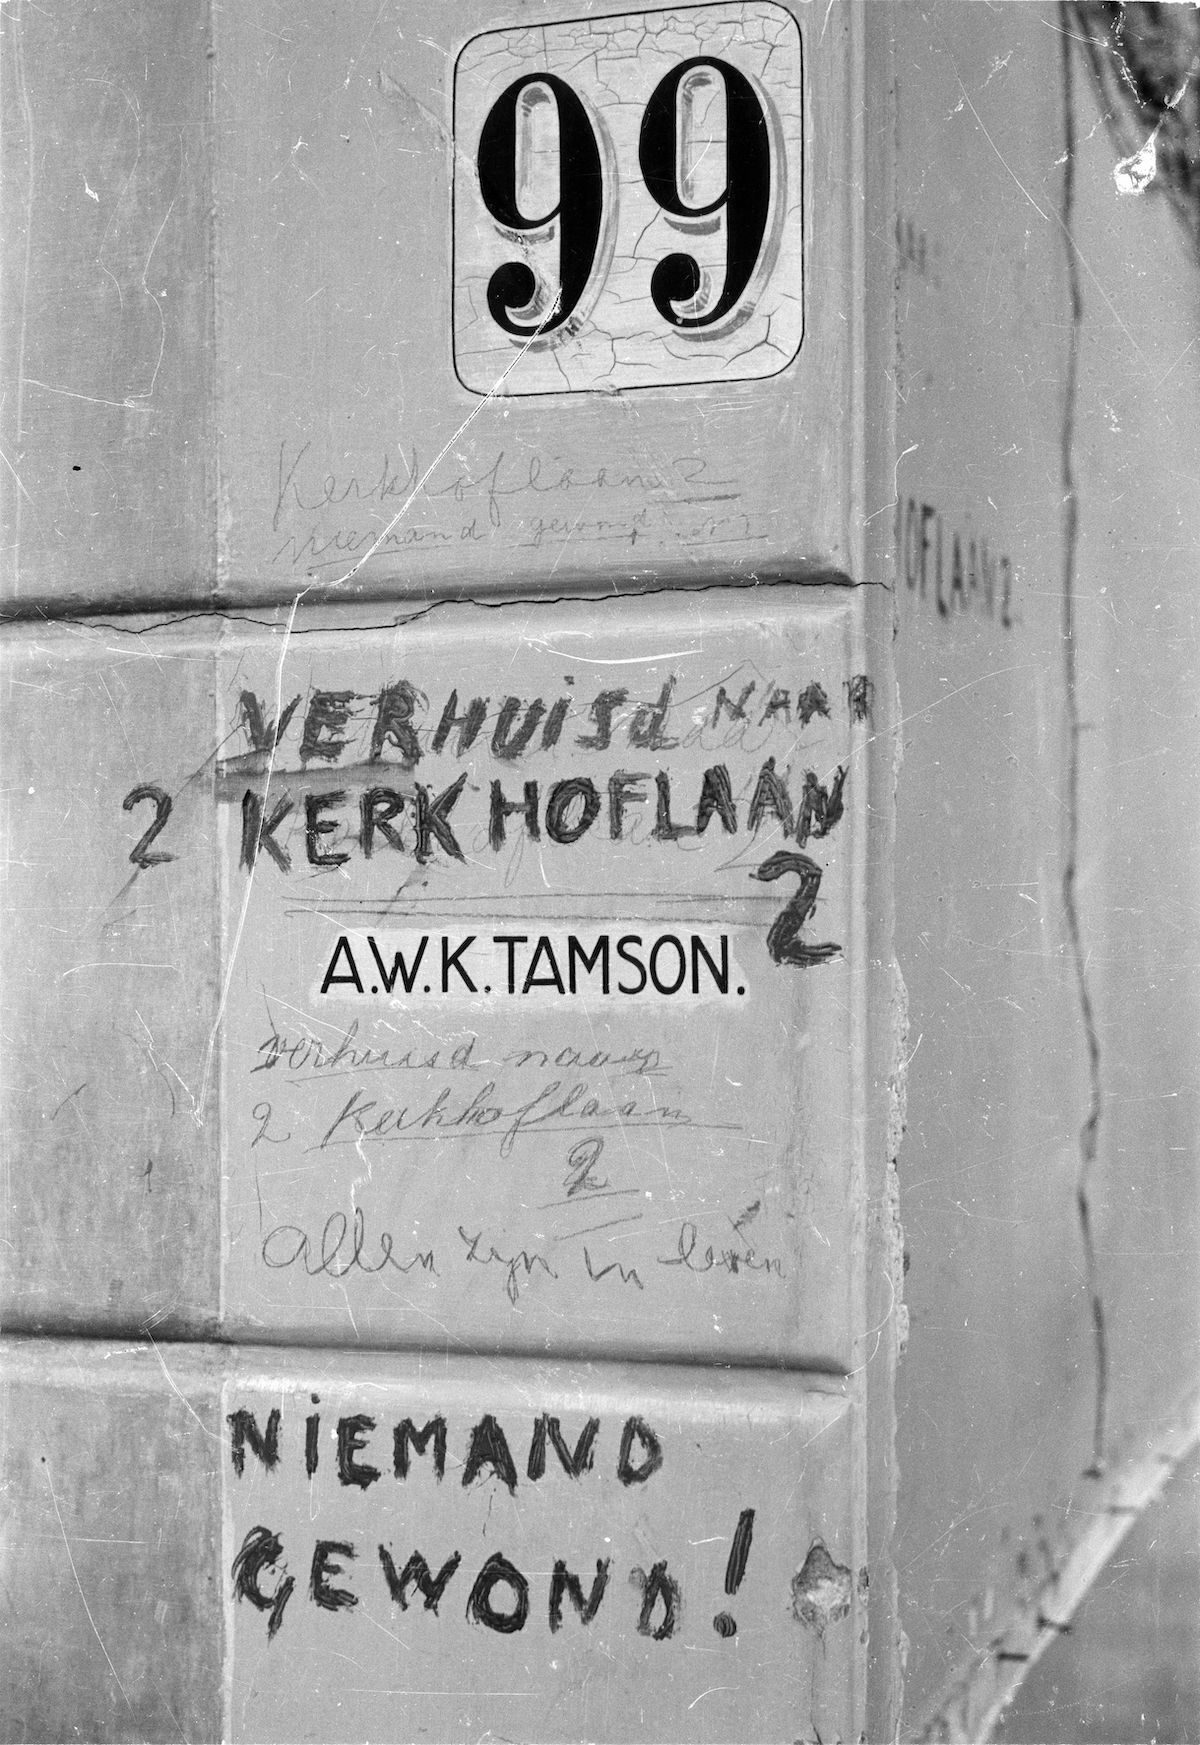 99
Kerkhoflaan 2
niemand gewond
OFLAAN 2
VERHUISd NAAR
2 KERKHOFLAAN
2
A.W.K.TAMSON.
verhuisd naar
2 Kerkhoflaan
2
Allen zijn in leven
NiEMAND
GEWOND!